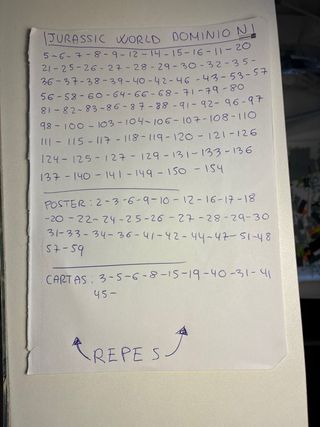 JURASSIC WORLD DOMINION
5-6-7-8-9-12-14-15-16-11-20
21-25-26-27-28-29-30-32-35-
36-37-38-39-40-42-46-43-53-57
56-58-60-64-66-68-71-79-80
81-82-83-86-87-88-91-92-96-97
98-100-103-104-106-107-108-110
111-115-117-118-119-120-121-126
124-125-127-129-131-133-136
137-140-141-149-150-154
POSTER: 2-3-6-9-10-12-16-17-18
-20-22-24-25-26-27-28-29-30
31-33-34-36-41-42-44-47-51-48
57-59
CARTAS: 3-5-6-8-15-19-40-31-41
45-
REPES